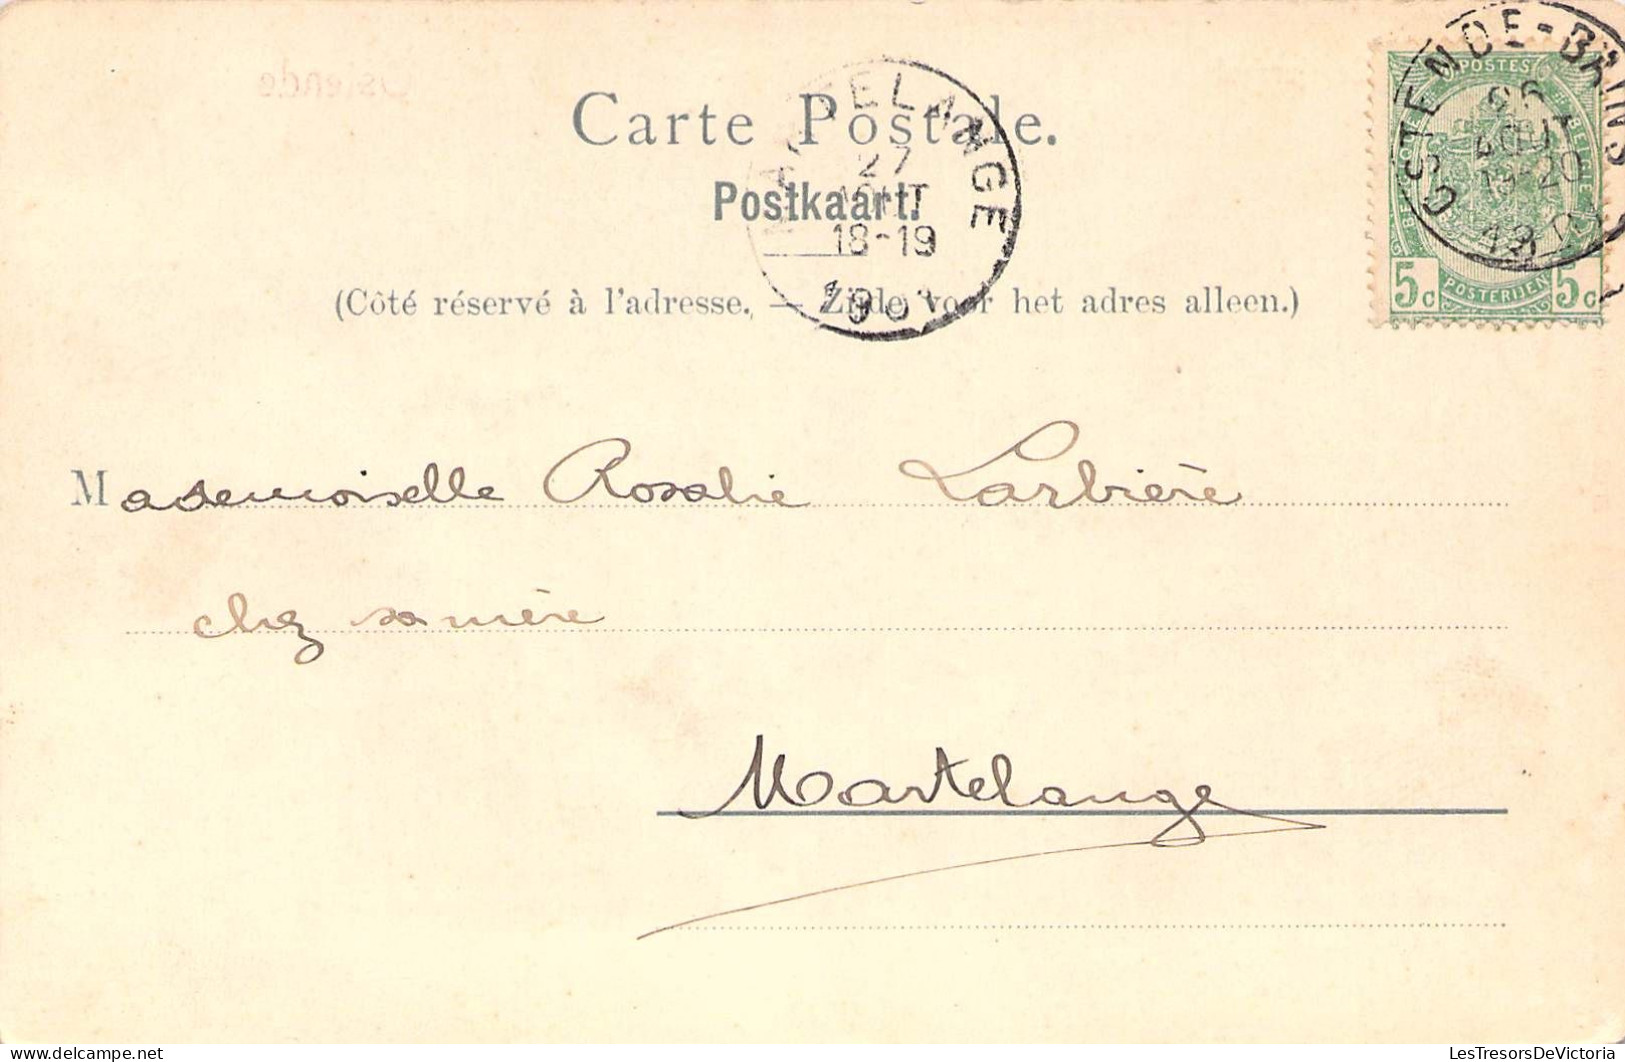 Ostende
Carte Postale.
Postkaart.
(Côté réservé à l'adresse. — Zijde voor het adres alleen.)
MARTELANGE
27
AOUT
18-19
OSTENDE-BAINS
26
AOUT
19-20
POSTES
BELGIQUE
BELGIE
5c POSTERIJEN 5c
Mademoiselle Rosalie Larbière
chez sa mère
Martelange
LesTresorsDeVictoria